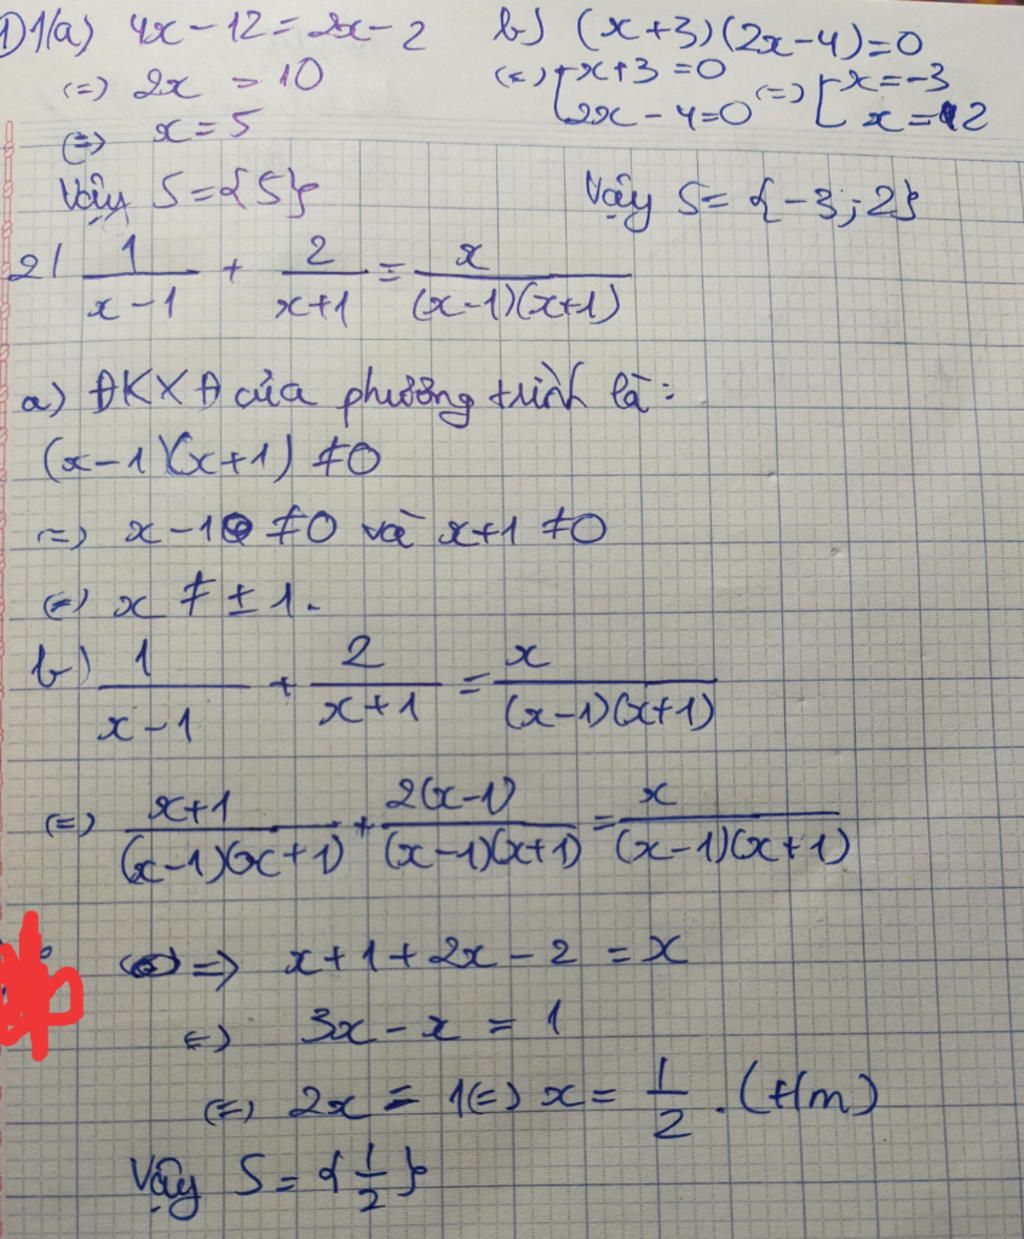 1) 1/a) 4x - 12 = 2x - 2
(=) 2x = 10
(=) x = 5
Vậy S = {5}
b) (x+3)(2x-4) = 0
(=) [x+3 = 0 (=) [x = -3
2x - 4 = 0 x = 2
Vậy S = {-3; 2}
2/ 1/(x-1) + 2/(x+1) = x/((x-1)(x+1))
a) ĐKXĐ của phương trình là:
(x-1)(x+1) ≠ 0
(=) x - 1 ≠ 0 và x+1 ≠ 0
(=) x ≠ ± 1.
b) 1/(x-1) + 2/(x+1) = x/((x-1)(x+1))
(=) (x+1)/((x-1)(x+1)) + 2(x-1)/((x-1)(x+1)) = x/((x-1)(x+1))
=> x+1+2x-2 = x
(=) 3x - x = 1
(=) 2x = 1 (=) x = 1/2. (t/m)
Vậy S = {1/2}